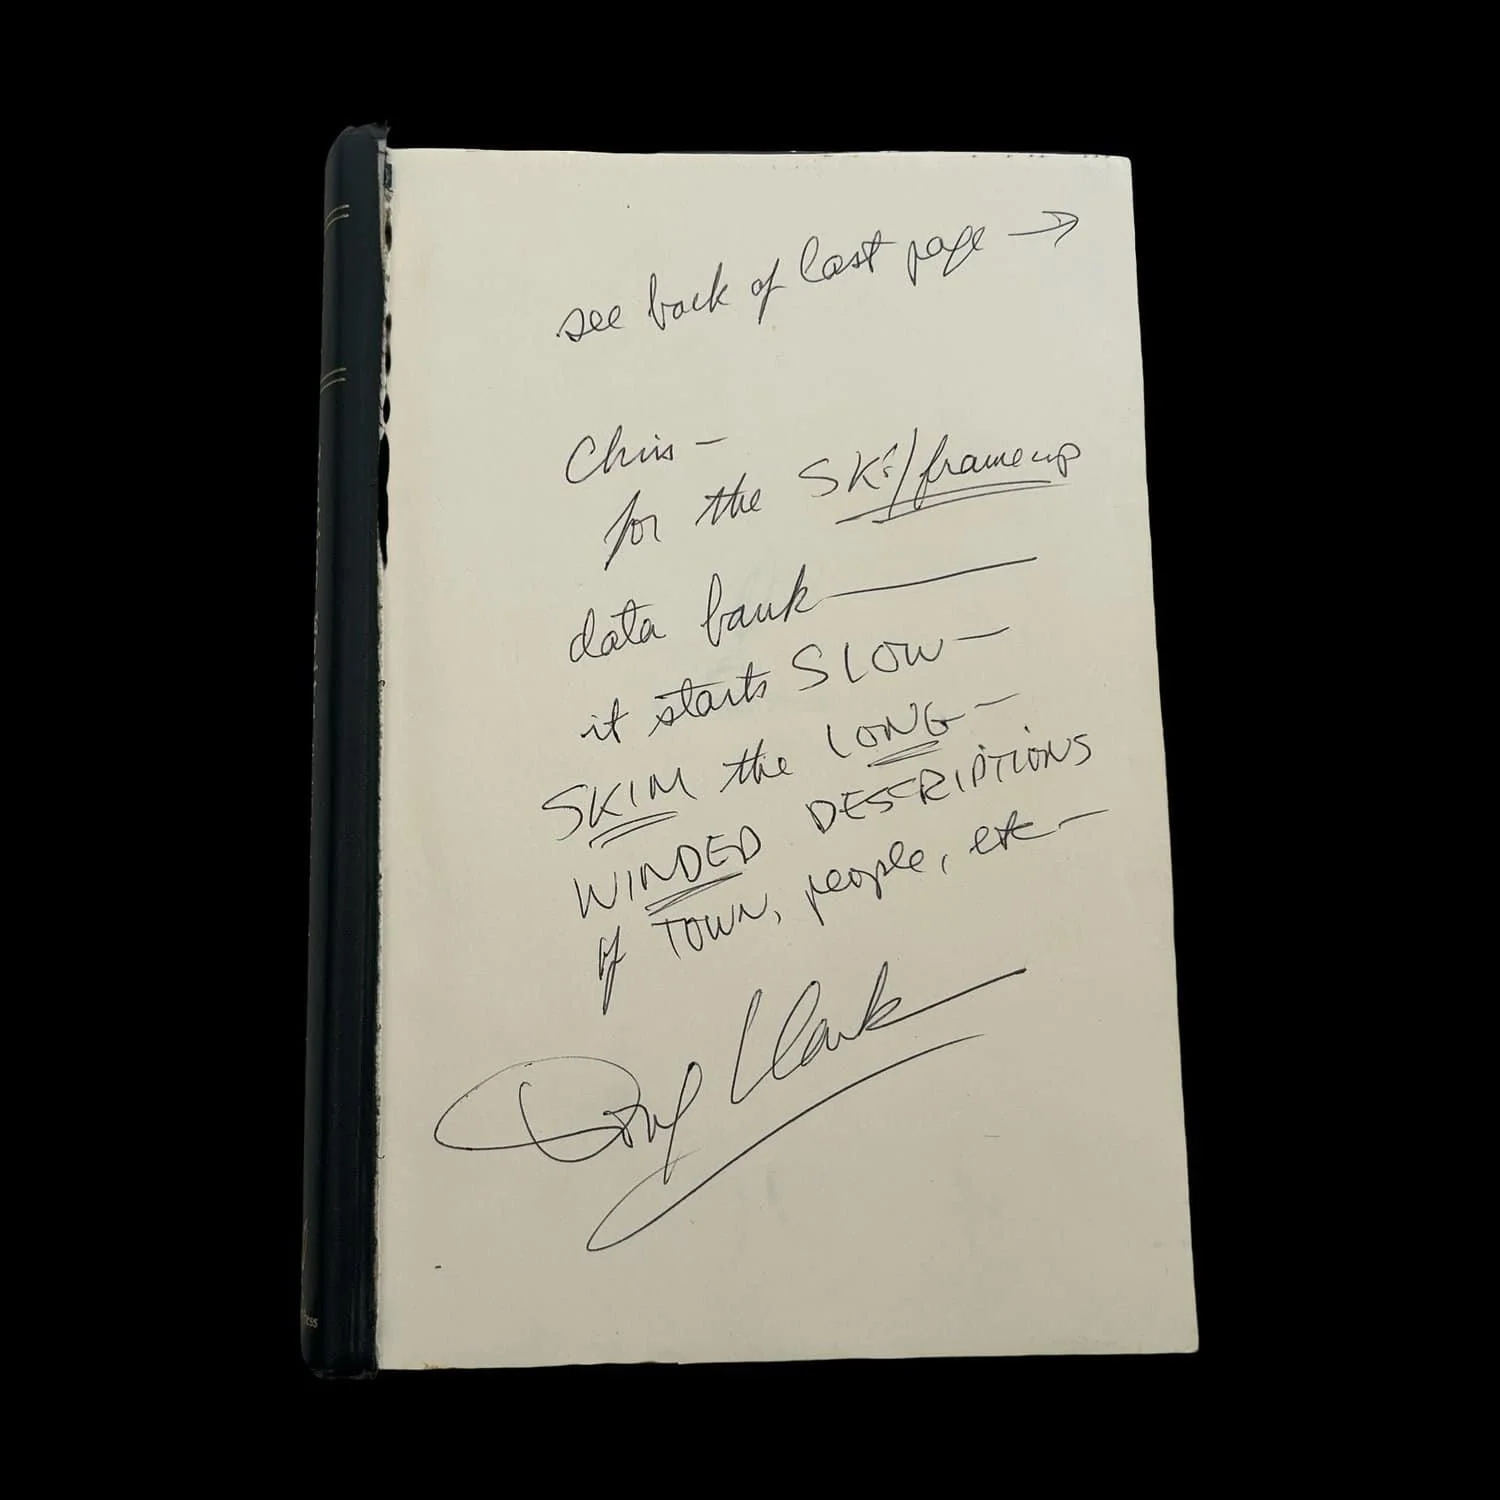 see back of last page →
Chris —
for the SKi/frameup
data bank —
it starts SLOW —
SKIM the LONG —
WINDED DESCRIPTIONS
of TOWN, people, etc —
Doug Clark